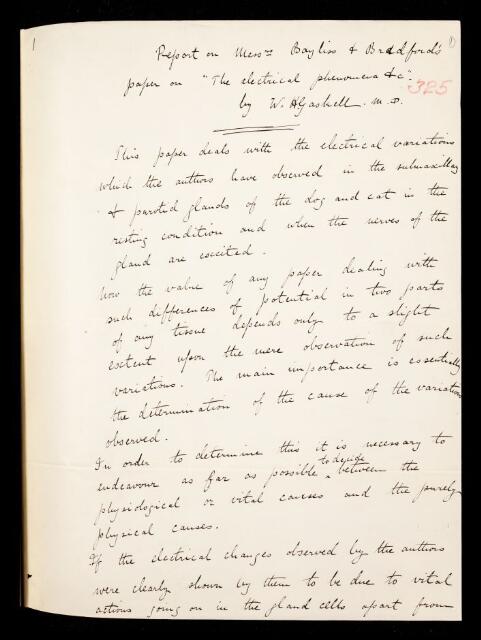 1
1)
Report on Messrs Bayliss & Bradford's
paper on "The electrical phenomena &c".
325
by W. H Gaskell. M.D.
This paper deals with the electrical variations
which the authors have observed in the submaxillary
& parotid glands of the dog and cat in the
resting condition and when the nerves of the
gland are excited.
Now the value of any paper dealing with
such differences of potential in two parts
of any tissue depends only to a slight
extent upon the mere observation of such
variations. The main importance is essentially
the determination of the cause of the variations
observed.
In order to determine this it is necessary to
to decide
endeavour as far as possible ‸ between the
physiological or vital causes and the purely
physical causes.
If the electrical changes observed by the authors
were clearly shown by them to be due to vital
actions going on in the gland cells apart from